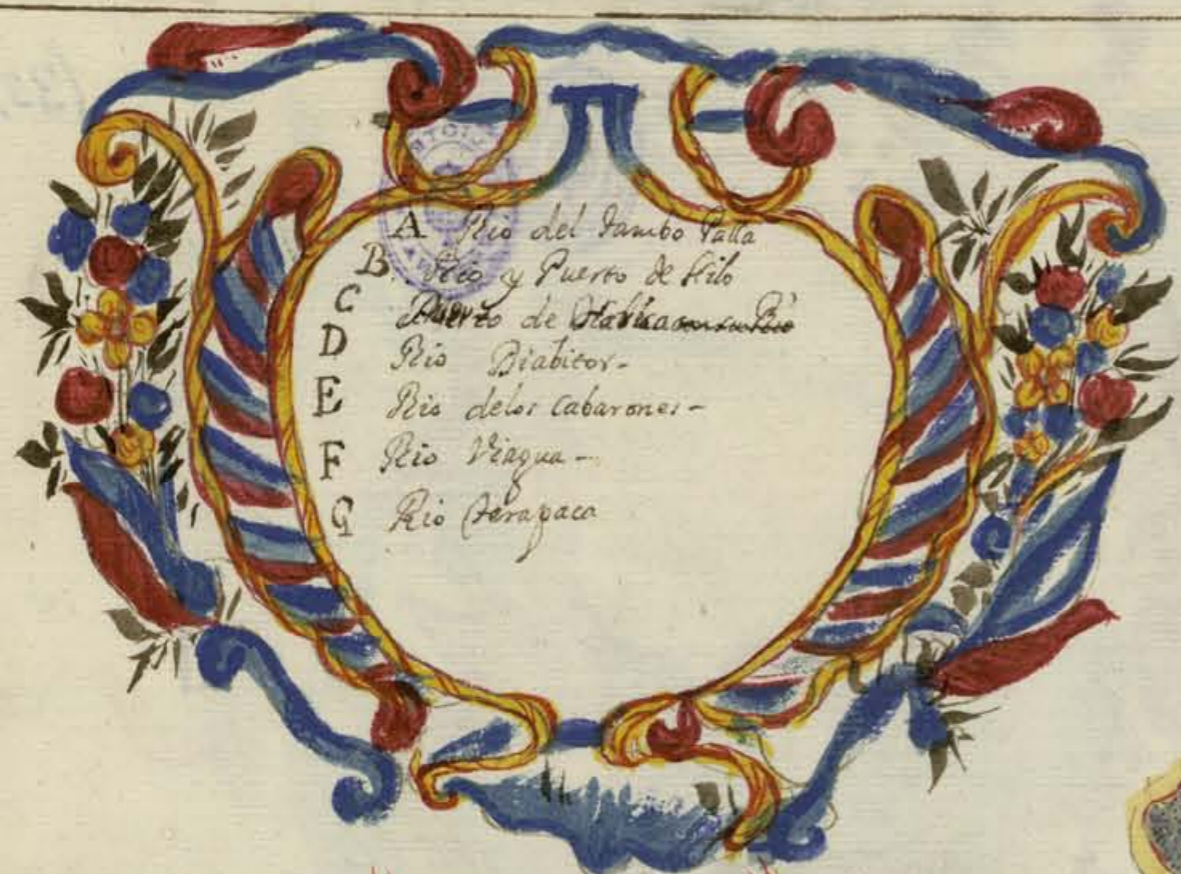 A Rio del Tambo Palla
B Rio y Puerto de Hilo
C Puerto de
D Rio Diabitos-
E Rio delos Cabarones-
F Rio Viagua-
G Rio Terapaca